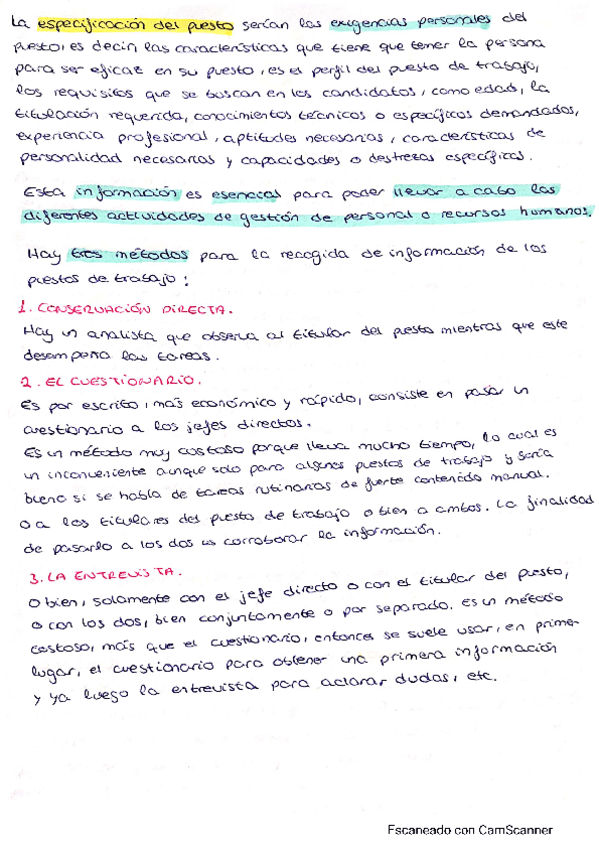 La especificación del puesto serían las exigencias personales del
puesto, es decir, las características que tiene que tener la persona
para ser eficaz en su puesto, es el perfil del puesto de trabajo,
los requisitos que se buscan en los candidatos, como edad, la
titulación requerida, conocimientos técnicos o específicos demandados,
experiencia profesional, aptitudes necesarias, características de
personalidad necesarias y capacidades o destrezas específicas.
Esta información es esencial para poder llevar a cabo las
diferentes actividades de gestión de personal o recursos humanos.
Hay tres métodos para la recogida de información de los
puestos de trabajo:
1. CONSERVACIÓN DIRECTA.
Hay un analista que observa al titular del puesto mientras que este
desempeña las tareas.
2. EL CUESTIONARIO.
Es por escrito, más económico y rápido, consiste en pasar un
cuestionario a los jefes directos.
Es un método muy costoso porque lleva mucho tiempo, lo cual es
un inconveniente aunque solo para algunos puestos de trabajo y sería
bueno si se habla de tareas rutinarias de fuerte contenido manual.
o a los titulares del puesto de trabajo o bien a ambos. La finalidad
de pasarlo a los dos es corroborar la información.
3. LA ENTREVISTA.
O bien, solamente con el jefe directo o con el titular del puesto,
o con los dos, bien conjuntamente o por separado. Es un método
costoso, más que el cuestionario, entonces se suele usar, en primer
lugar, el cuestionario para obtener una primera información
y ya luego la entrevista para aclarar dudas, etc.
Escaneado con CamScanner